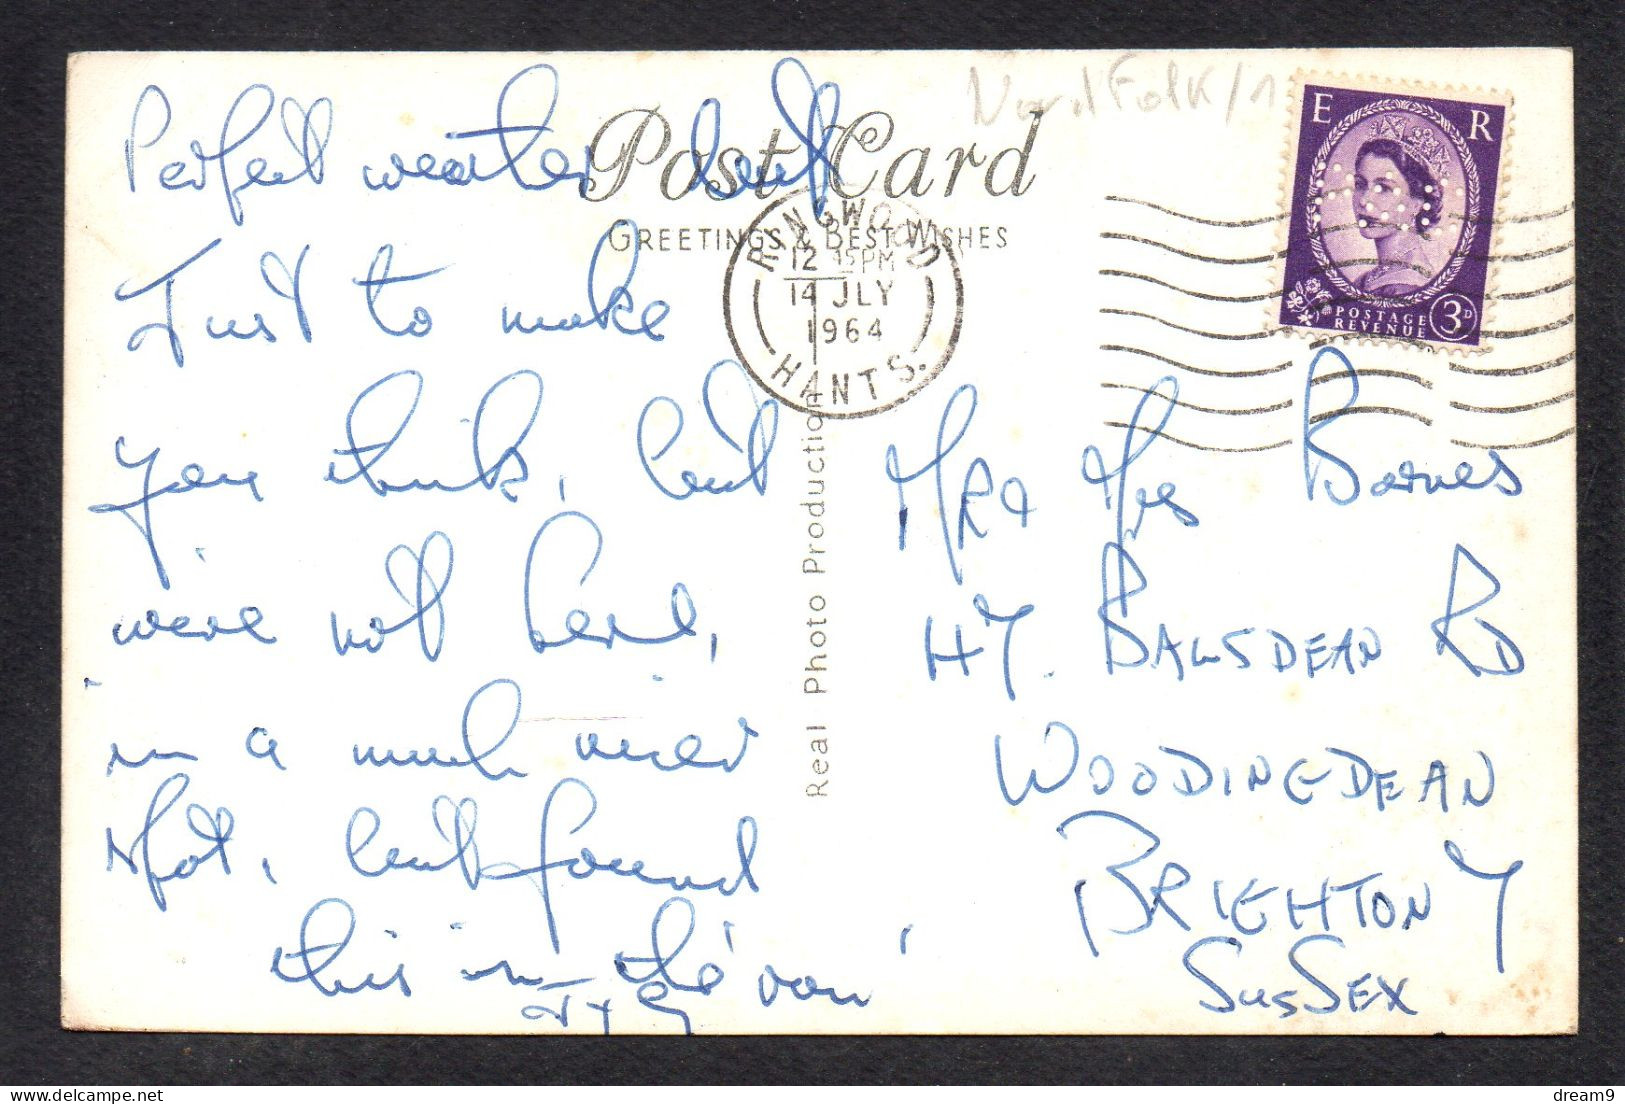 NordFolk/1
Post Card
GREETINGS & BEST WISHES
E R
POSTAGE
REVENUE
3D
RINGWOOD
12 15PM
14 JLY
1964
HANTS.
Real Photo Production
Perfect weather but
Just to make
you think, but
were not here,
in a much nicer
spot, but found
this in the 'van'
J + G
MR & Mrs Barnes
47. BALSDEAN RD
WOODINGDEAN
BRIGHTON 7
SUSSEX
delcampe.net
dream9